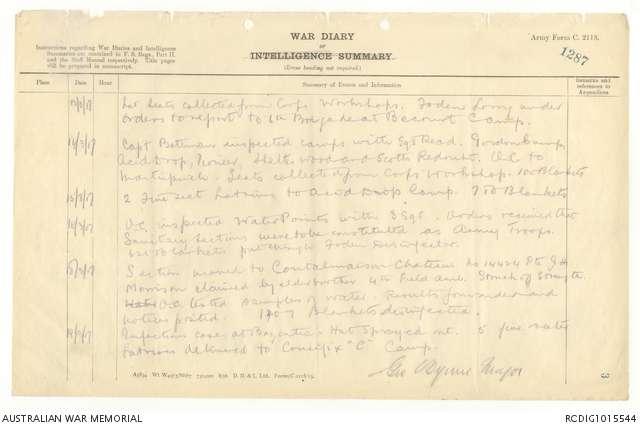 WAR DIARY
or
INTELLIGENCE SUMMARY.
(Erase heading not required.)
Army Form C. 2118.
1287
Instructions regarding War Diaries and Intelligence
Summaries are contained in F. S. Regs., Part II.
and the Staff Manual respectively. Title pages
will be prepared in manuscript.
Place Date Hour Summary of Events and Information Remarks and references to Appendices
13/3/17 Lat. Seats collected from Corps Workshops. Foden Lorry under
orders to report to 6th Brigade at Becourt Camp.
14/3/17 Capt Bateman inspected camps with Sgt Read. Gordon Camp,
Acid Drop, Villa Wood and Scotts Redoubt. O.C. to
Martinpuich. Seats collected from Corps Workshop. 100 Blankets
15/3/17 2 Five seat Latrines to Acid Drop Camp. 750 Blankets
16/3/17 O.C. inspected Water Points with S Sgt. Orders received that
Sanitary Sections were to be constituted as Army Troops.
Blankets put through Foden Disinfector.
Section moved to Contalmaison Chateau No 14424 Pte J H
Morrison claimed by elder brother 4th Field Amb. Struck off Strength.
O.C. tested samples of water. Results forwarded and
notices posted. 1307 Blankets disinfected.
Infectious case at Bazentin. Hut Sprayed out. 5 five seater
Latrines delivered to Camp "C" Camp.
Major
3
D. D. & L., Ltd.
AUSTRALIAN WAR MEMORIAL
RCDIG1015544